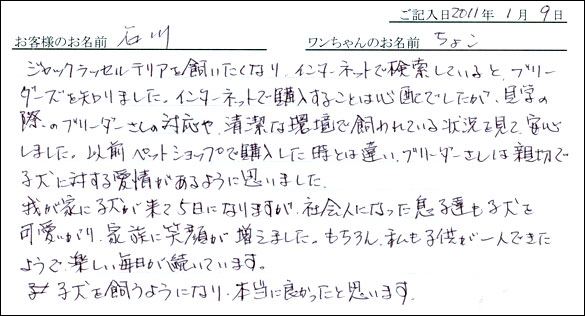 ご記入日2011年 1月 9日
お客様のお名前 石川 ワンちゃんのお名前 ちょこ
ジャックラッセルテリアを飼いたくなり、インターネットで検索していると、ブリー
ダーズを知りました。インターネットで購入することは心配でしたが、見学の
際のブリーダーさんの対応や、清潔な環境で飼われている状況を見て、安心
しました。以前ペットショップで購入した時とは違い、ブリーダーさんは親切で
子犬に対する愛情があるように思いました。
我が家に子犬が来て5日になりますが、社会人になった息子達も子犬を
可愛いがり、家族に笑顔が増えました。もちろん、私も子供が一人できた
ようで、楽しい毎日が続いています。
子犬を飼うようになり、本当に良かったと思います。